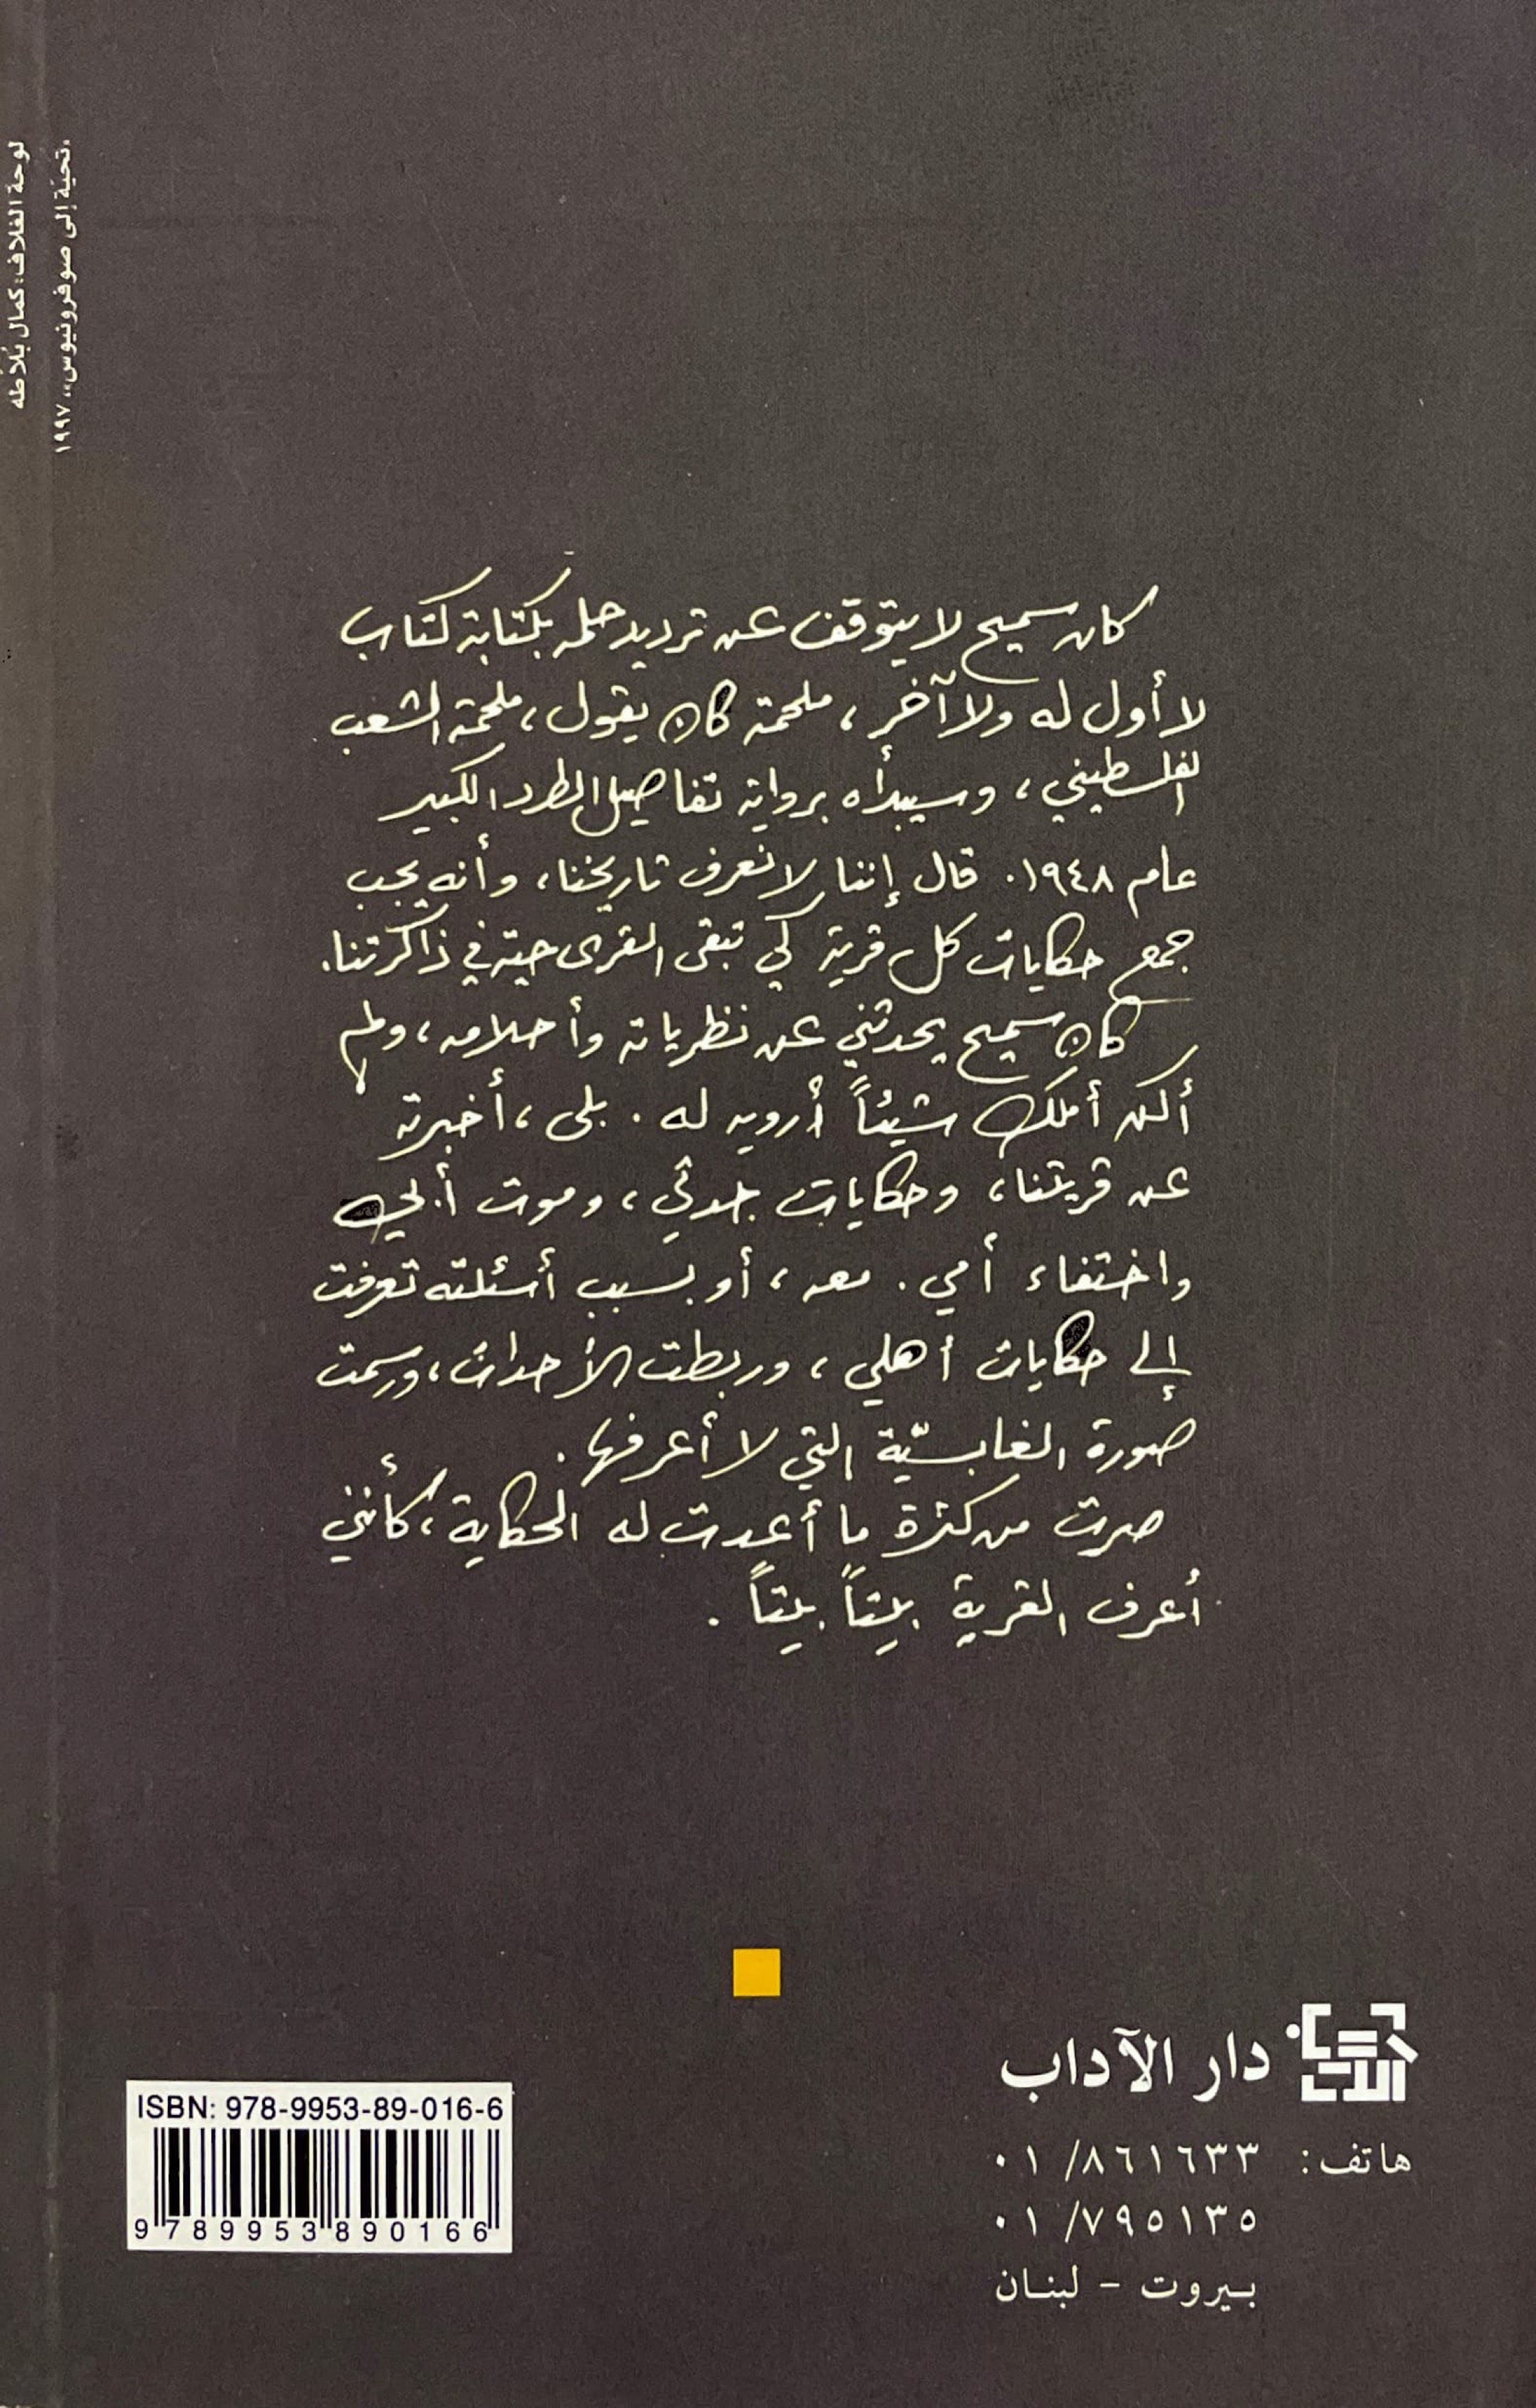 لوحة الغلاف: كمال بُلّاطه
«تحيّة إلى صوفرونيوس»، ١٩٩٧
كان سميح لا يتوقف عن ترديد حلمه بكتابة كتاب
لا أول له ولا آخر، ملحمة كان يقول، ملحمة الشعب
الفلسطيني، وسيبدأه برواية تفاصيل الطرد الكبير
عام ١٩٤٨. قال إننا لا نعرف تاريخنا، وأنه يجب
جمع حكايات كل قرية كي تبقى القرى حية في ذاكرتنا.
كان سميح يحدثني عن نظرياته وأحلامه، ولم
أكن أملك شيئاً أرويه له. بلى، أخبرته
عن قريتنا، وحكايات جدتي، وموت أبي
واختفاء أمي. معه، أو بسبب أسئلته تعرفت
إلى حكايات أهلي، وربطت الأحداث، ورسمت
صورة الغابسيّة التي لا أعرفها.
صرت من كثرة ما أعدت له الحكاية، كأنني
أعرف القرية بيتاً بيتاً.
دار الآداب
هاتف: ٠١/٨٦١٦٣٣
٠١/٧٩٥١٣٥
بيروت - لبنان
ISBN: 978-9953-89-016-6
9 789953 890166